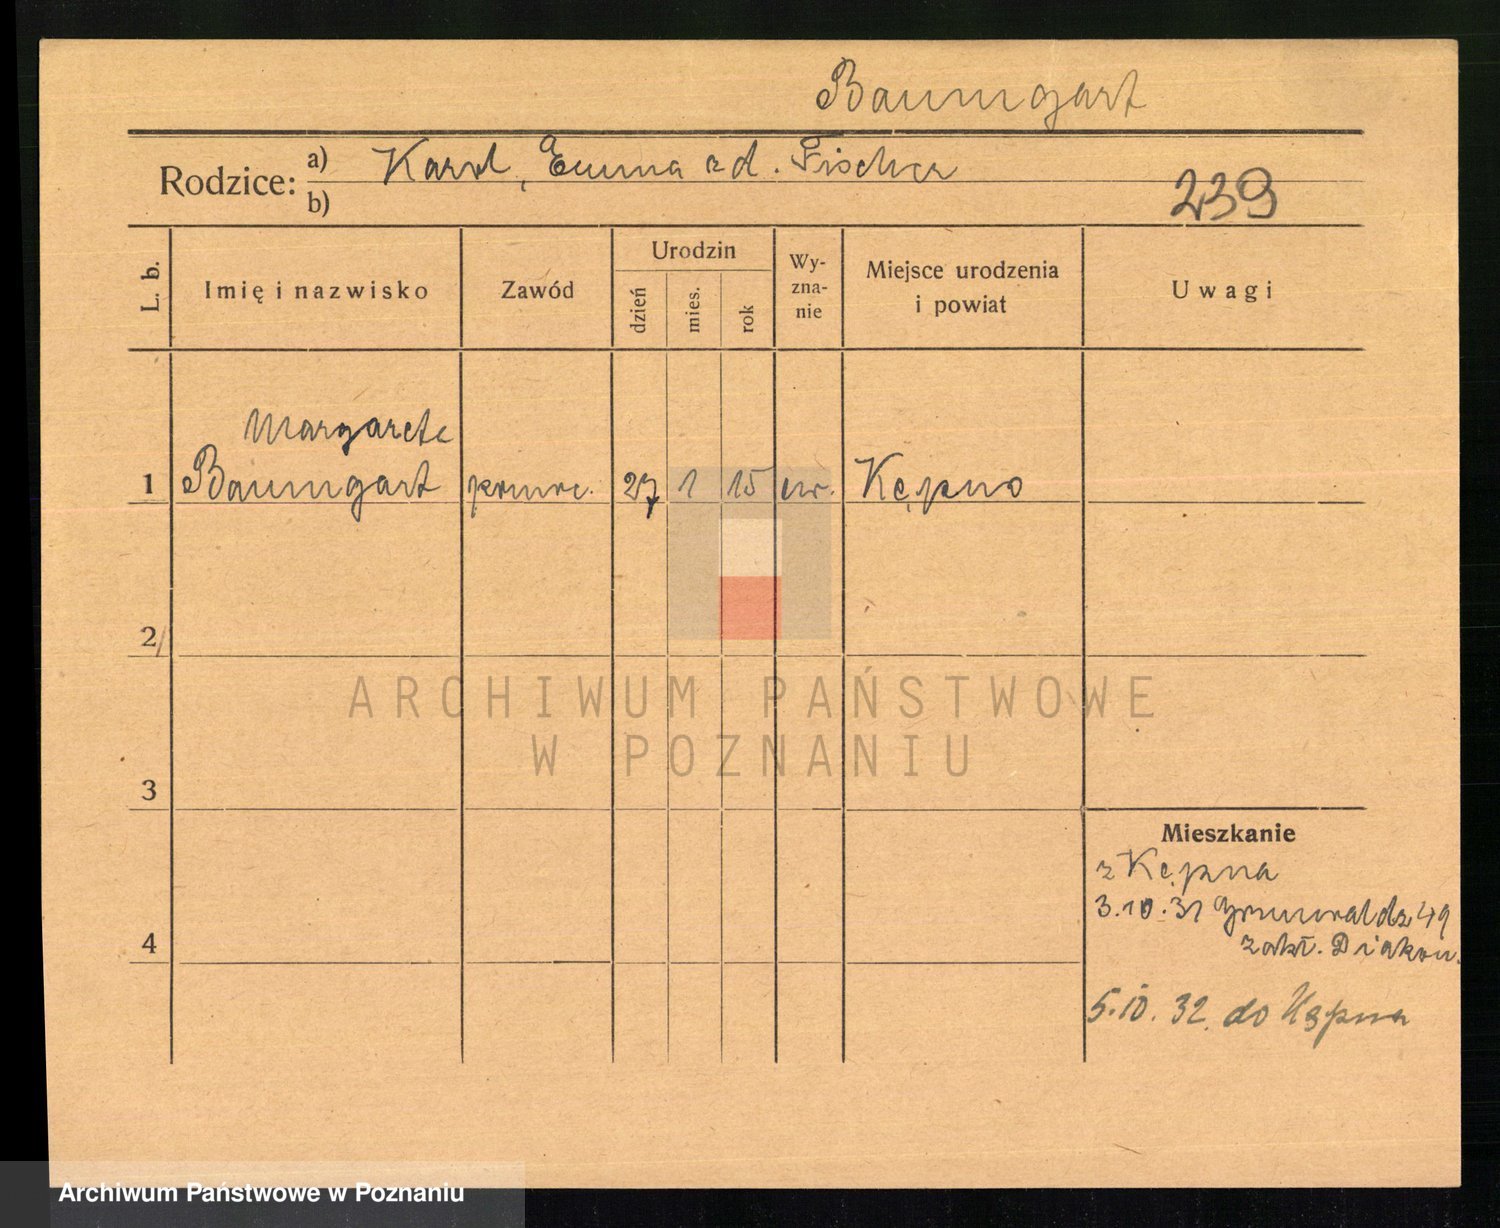 Baumgart
Rodzice: a) Karol, Emma zd. Fischer
b)
239
L. b.
Imię i nazwisko
Zawód
Urodzin
dzień
mies.
rok
Wy-
zna-
nie
Miejsce urodzenia
i powiat
Uwagi
Margarete
1 Baumgart 27 1 15 Kępno
2
3
4
ARCHIWUM PAŃSTWOWE
W POZNANIU
Mieszkanie
z Kępna
3.10.31 Grunwaldz. 49
zakł. Diakon.
5.10.32. do Kępna
Archiwum Państwowe w Poznaniu